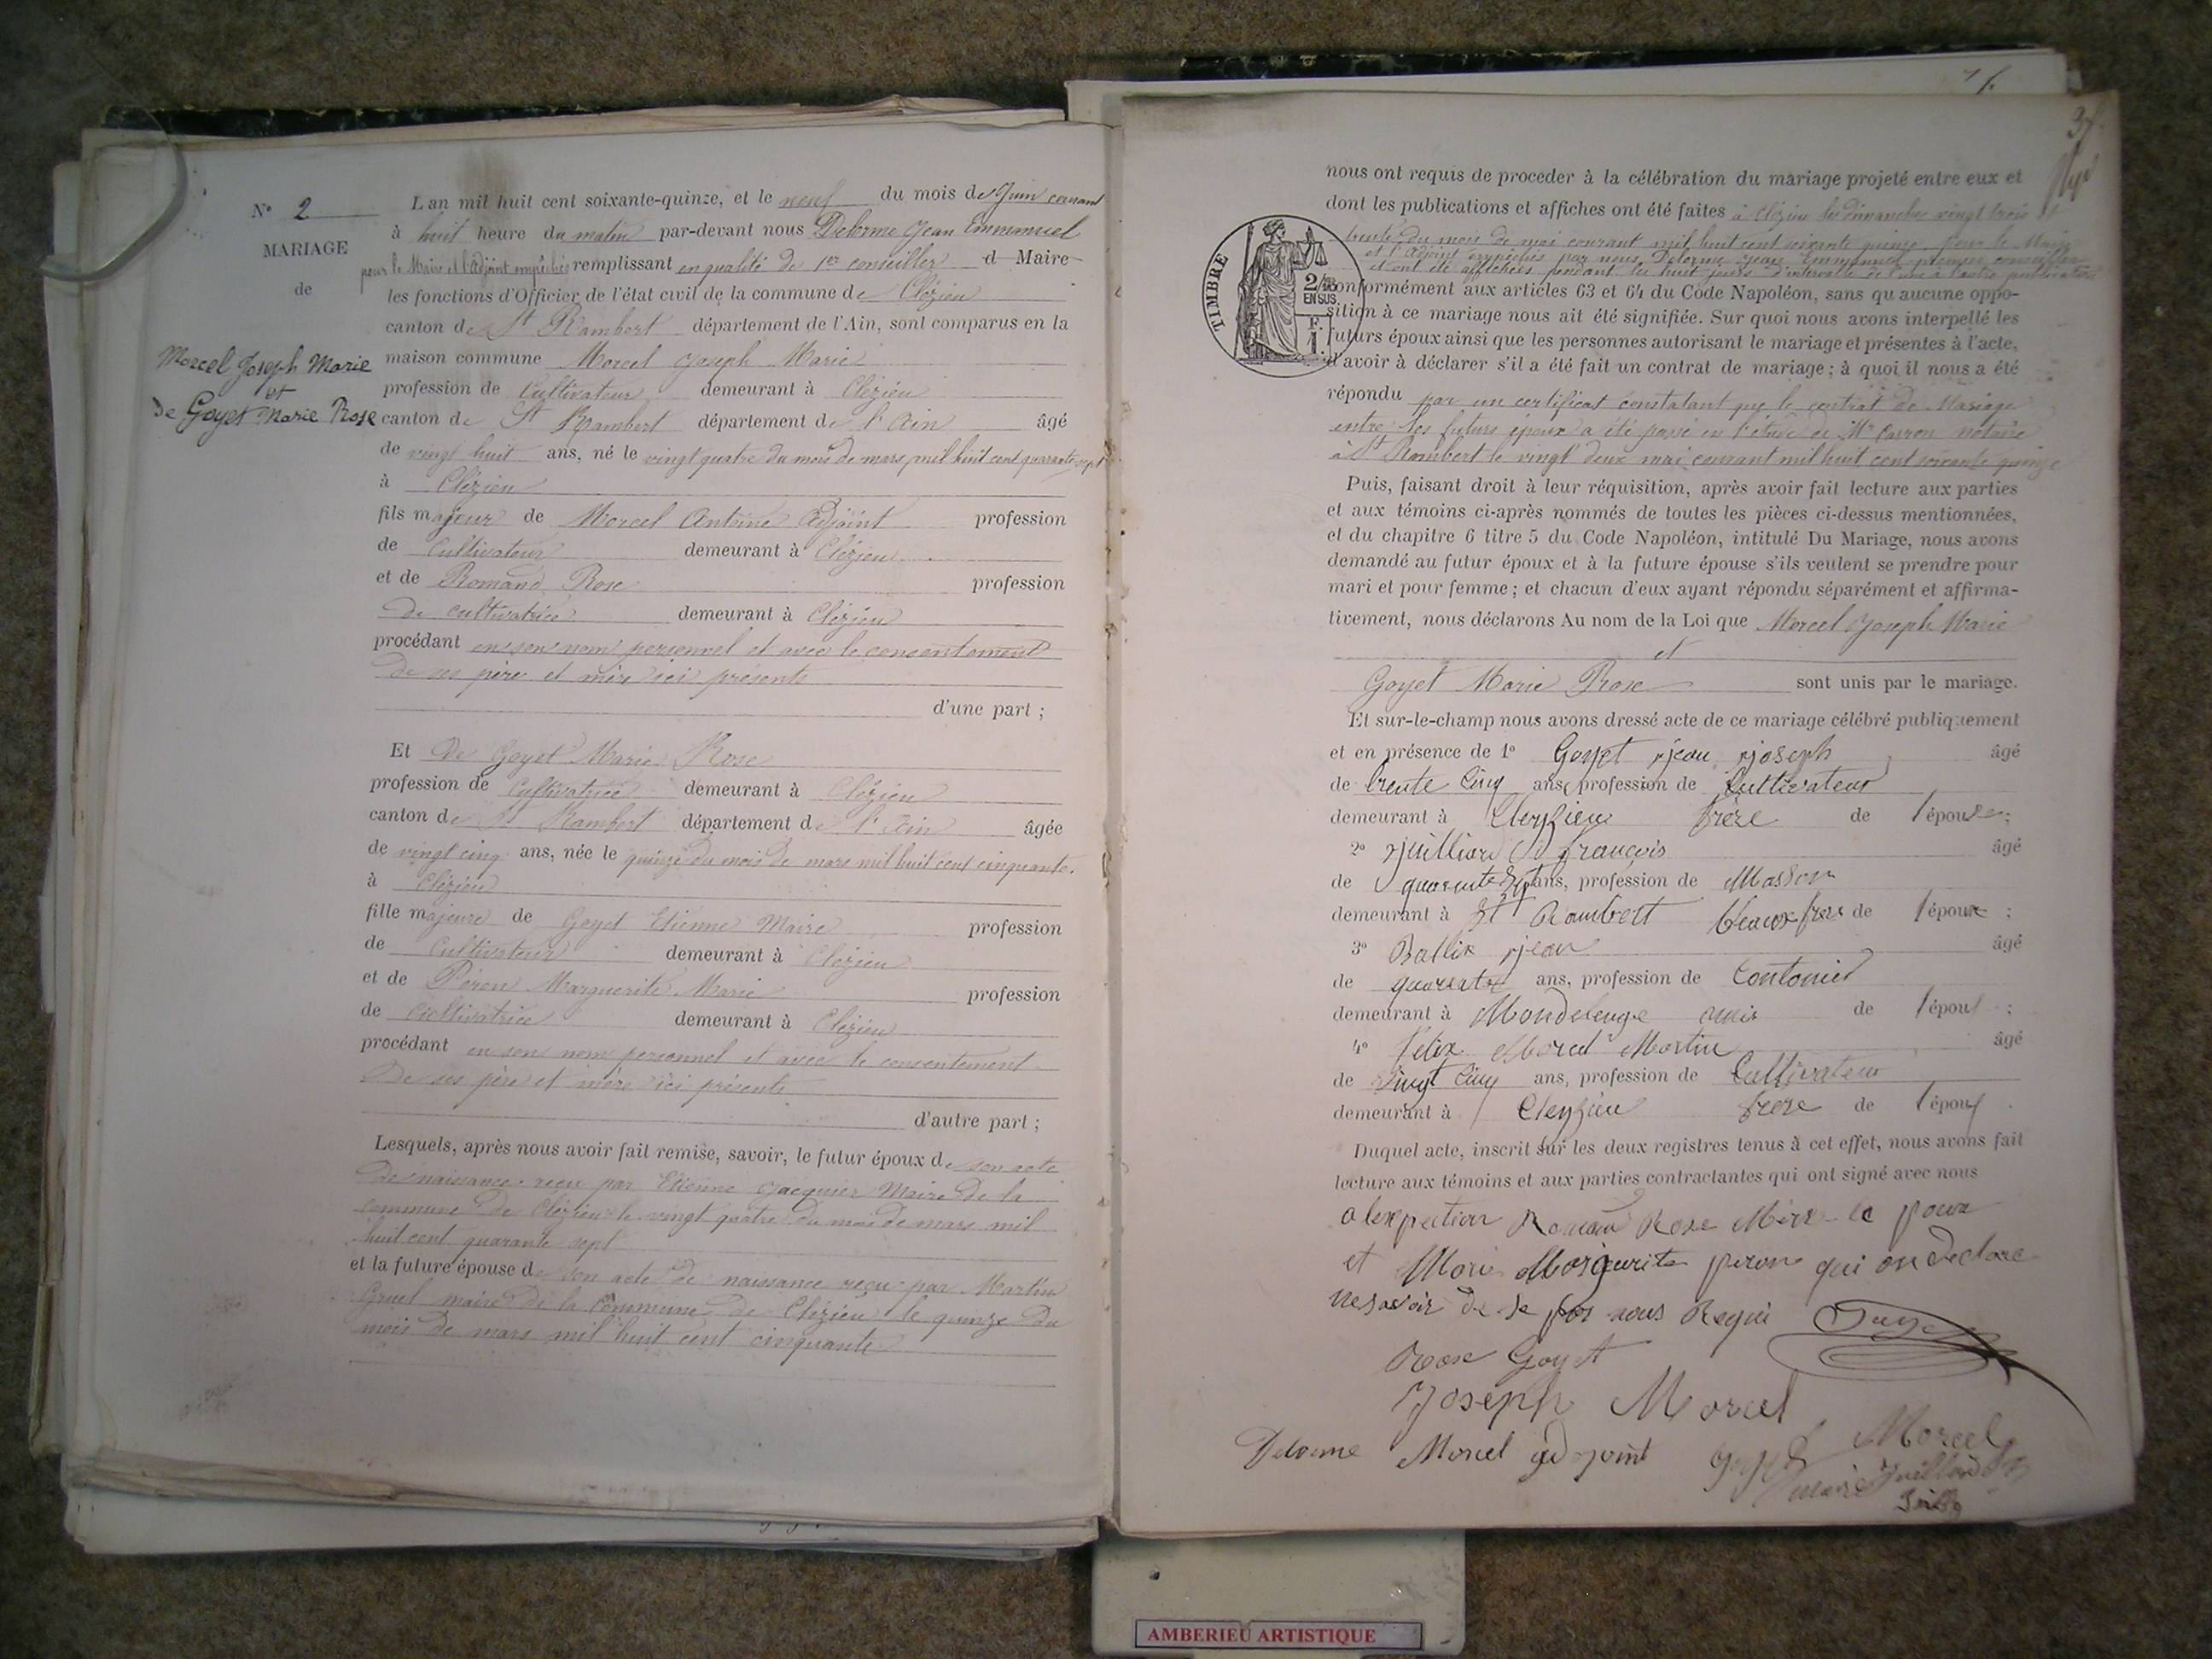 N° 2
MARIAGE
de
Morcel Joseph Marie
et
de Goyet Marie Rose
L'an mil huit cent soixante-quinze, et le neuf du mois de Juin courant
à huit heure du matin par-devant nous Delorme Jean Emmanuel
pour le Maire et l'adjoint empêchés remplissant en qualité de 1er conseiller d Maire
les fonctions d'Officier de l'état civil de la commune de Clézieu
canton de St Rambert département de l'Ain, sont comparus en la
maison commune Morcel Joseph Marie
profession de Cultivateur demeurant à Clézieu
canton de St Rambert département de l'Ain âgé
de vingt huit ans, né le vingt quatre du mois de mars mil huit cent quarante sept
à Clézieu
fils majeur de Morcel Antoine Adjoint profession
de Cultivateur demeurant à Clézieu
et de Romand Rose profession
de cultivatrice demeurant à Clézieu
procédant en son nom personnel et avec le consentement
de ses père et mère ici présents
d'une part ;
Et De Goyet Marie Rose
profession de Cultivatrice demeurant à Clézieu
canton de St Rambert département de l'Ain âgée
de vingt cinq ans, née le quinze du mois de mars mil huit cent cinquante.
à Clézieu
fille majeure de Goyet Etienne Maire profession
de Cultivateur demeurant à Clézieu
et de Péron Marguerite Marie profession
de Cultivatrice demeurant à Clézieu
procédant en son nom personnel et avec le consentement
de ses père et mère ici présents
d'autre part ;
Lesquels, après nous avoir fait remise, savoir, le futur époux de son acte
de naissance reçu par Etienne Jacquier Maire de la
commune de Clézieu le vingt quatre du mois de mars mil
huit cent quarante sept
et la future épouse de son acte de naissance reçu par Martin
Gruel maire de la Commune de Clézieu le quinze du
mois de mars mil huit cent cinquante
37
nous ont requis de proceder à la célébration du mariage projeté entre eux et
dont les publications et affiches ont été faites à Clézieu les dimanches vingt trois et
trente du mois de mai courant mil huit cent soixante quinze pour le Maire
et l'Adjoint empêchés par nous Delorme Jean Emmanuel premier conseiller
et ont été affichées pendant les huit jours d'intervale de l'une à l'autre publication
TIMBRE
2/10
EN SUS.
F.
1
conformément aux articles 63 et 64 du Code Napoléon, sans qu'aucune oppo-
sition à ce mariage nous ait été signifiée. Sur quoi nous avons interpellé les
futurs époux ainsi que les personnes autorisant le mariage et présentes à l'acte,
d'avoir à déclarer s'il a été fait un contrat de mariage ; à quoi il nous a été
répondu par un certificat constatant que le contrat de Mariage
entre les futurs époux a été passé en l'étude de Me Carron notaire
à St Rambert le vingt deux mai courant mil huit cent soixante quinze
Puis, faisant droit à leur réquisition, après avoir fait lecture aux parties
et aux témoins ci-après nommés de toutes les pièces ci-dessus mentionnées,
et du chapitre 6 titre 5 du Code Napoléon, intitulé Du Mariage, nous avons
demandé au futur époux et à la future épouse s'ils veulent se prendre pour
mari et pour femme ; et chacun d'eux ayant répondu séparément et affirma-
tivement, nous déclarons Au nom de la Loi que Morcel Joseph Marie
et
Goyet Marie Rose sont unis par le mariage.
Et sur-le-champ nous avons dressé acte de ce mariage célébré publiquement
et en présence de 1° Goyet jean joseph âgé
de trente Cinq ans, profession de Cultivateur
demeurant à Cleyzieu frère de l'épouse ;
2° juilliard françois âgé
de quarente sept ans, profession de Masson
demeurant à St Rambert beaux frere de l'époux ;
3° Ballix jean âgé
de quarante ans, profession de Contonier
demeurant à Mondelenge amis de l'épou ;
4° Félix Morcel Martin âgé
de vingt Cinq ans, profession de Cultivateur
demeurant à Cleyzieu frere de l'épou
Duquel acte, inscrit sur les deux registres tenus à cet effet, nous avons fait
lecture aux témoins et aux parties contractantes qui ont signé avec nous
a lexpection Roman Rose Mère le poux
et Marie Margeurite peron qui on declare
ne savoir de se fos nous Requi
Rose Goyet
Joseph Morcel
Delorme Morcel adjoint Goyet Morcel
maire Juillard
AMBERIEU ARTISTIQUE